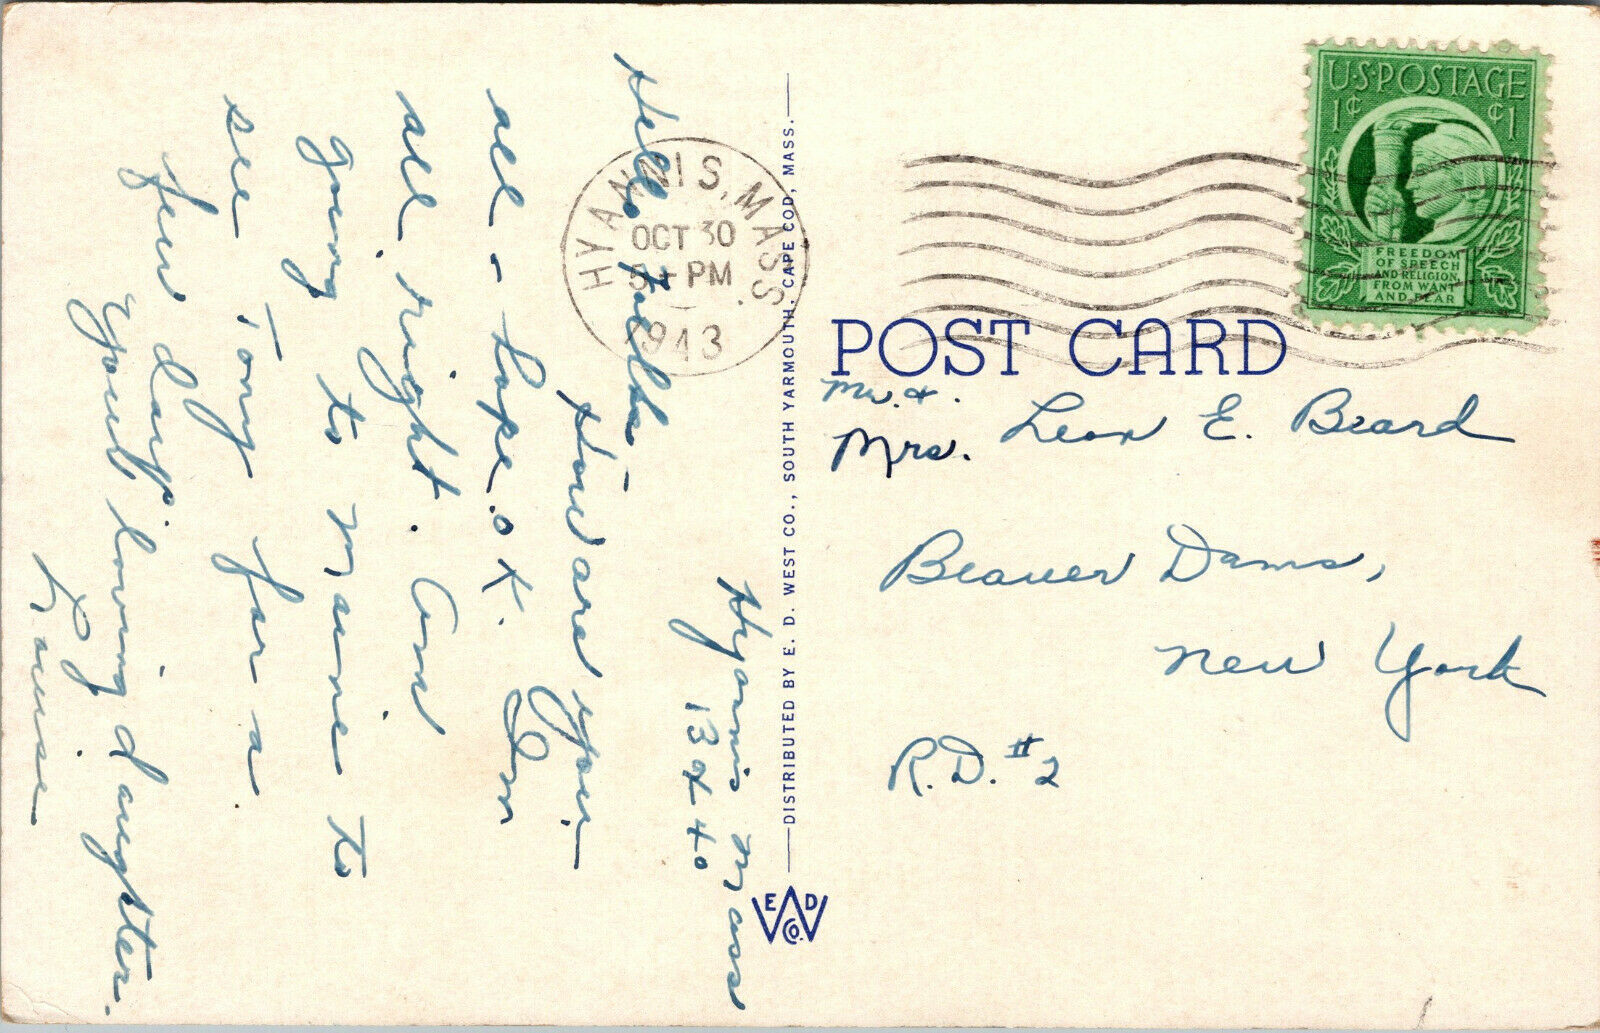 Hyannis Mass
Box 40
Hello Folks -
How are you
all - hope OK. Im
all right. Am
going to Maine to
see Tony for a
few days.
Your loving daughter.
Louise
HYANNIS, MASS.
OCT 30
5 - PM
1943
DISTRIBUTED BY E. D. WEST CO., SOUTH YARMOUTH, CAPE COD, MASS.
E D W CO.
U·S·POSTAGE
1¢ ¢1
FREEDOM
OF SPEECH
AND RELIGION,
FROM WANT
AND FEAR
POST CARD
Mr. &
Mrs. Leon E. Beard
Beaver Dams,
New York
R.D. #2